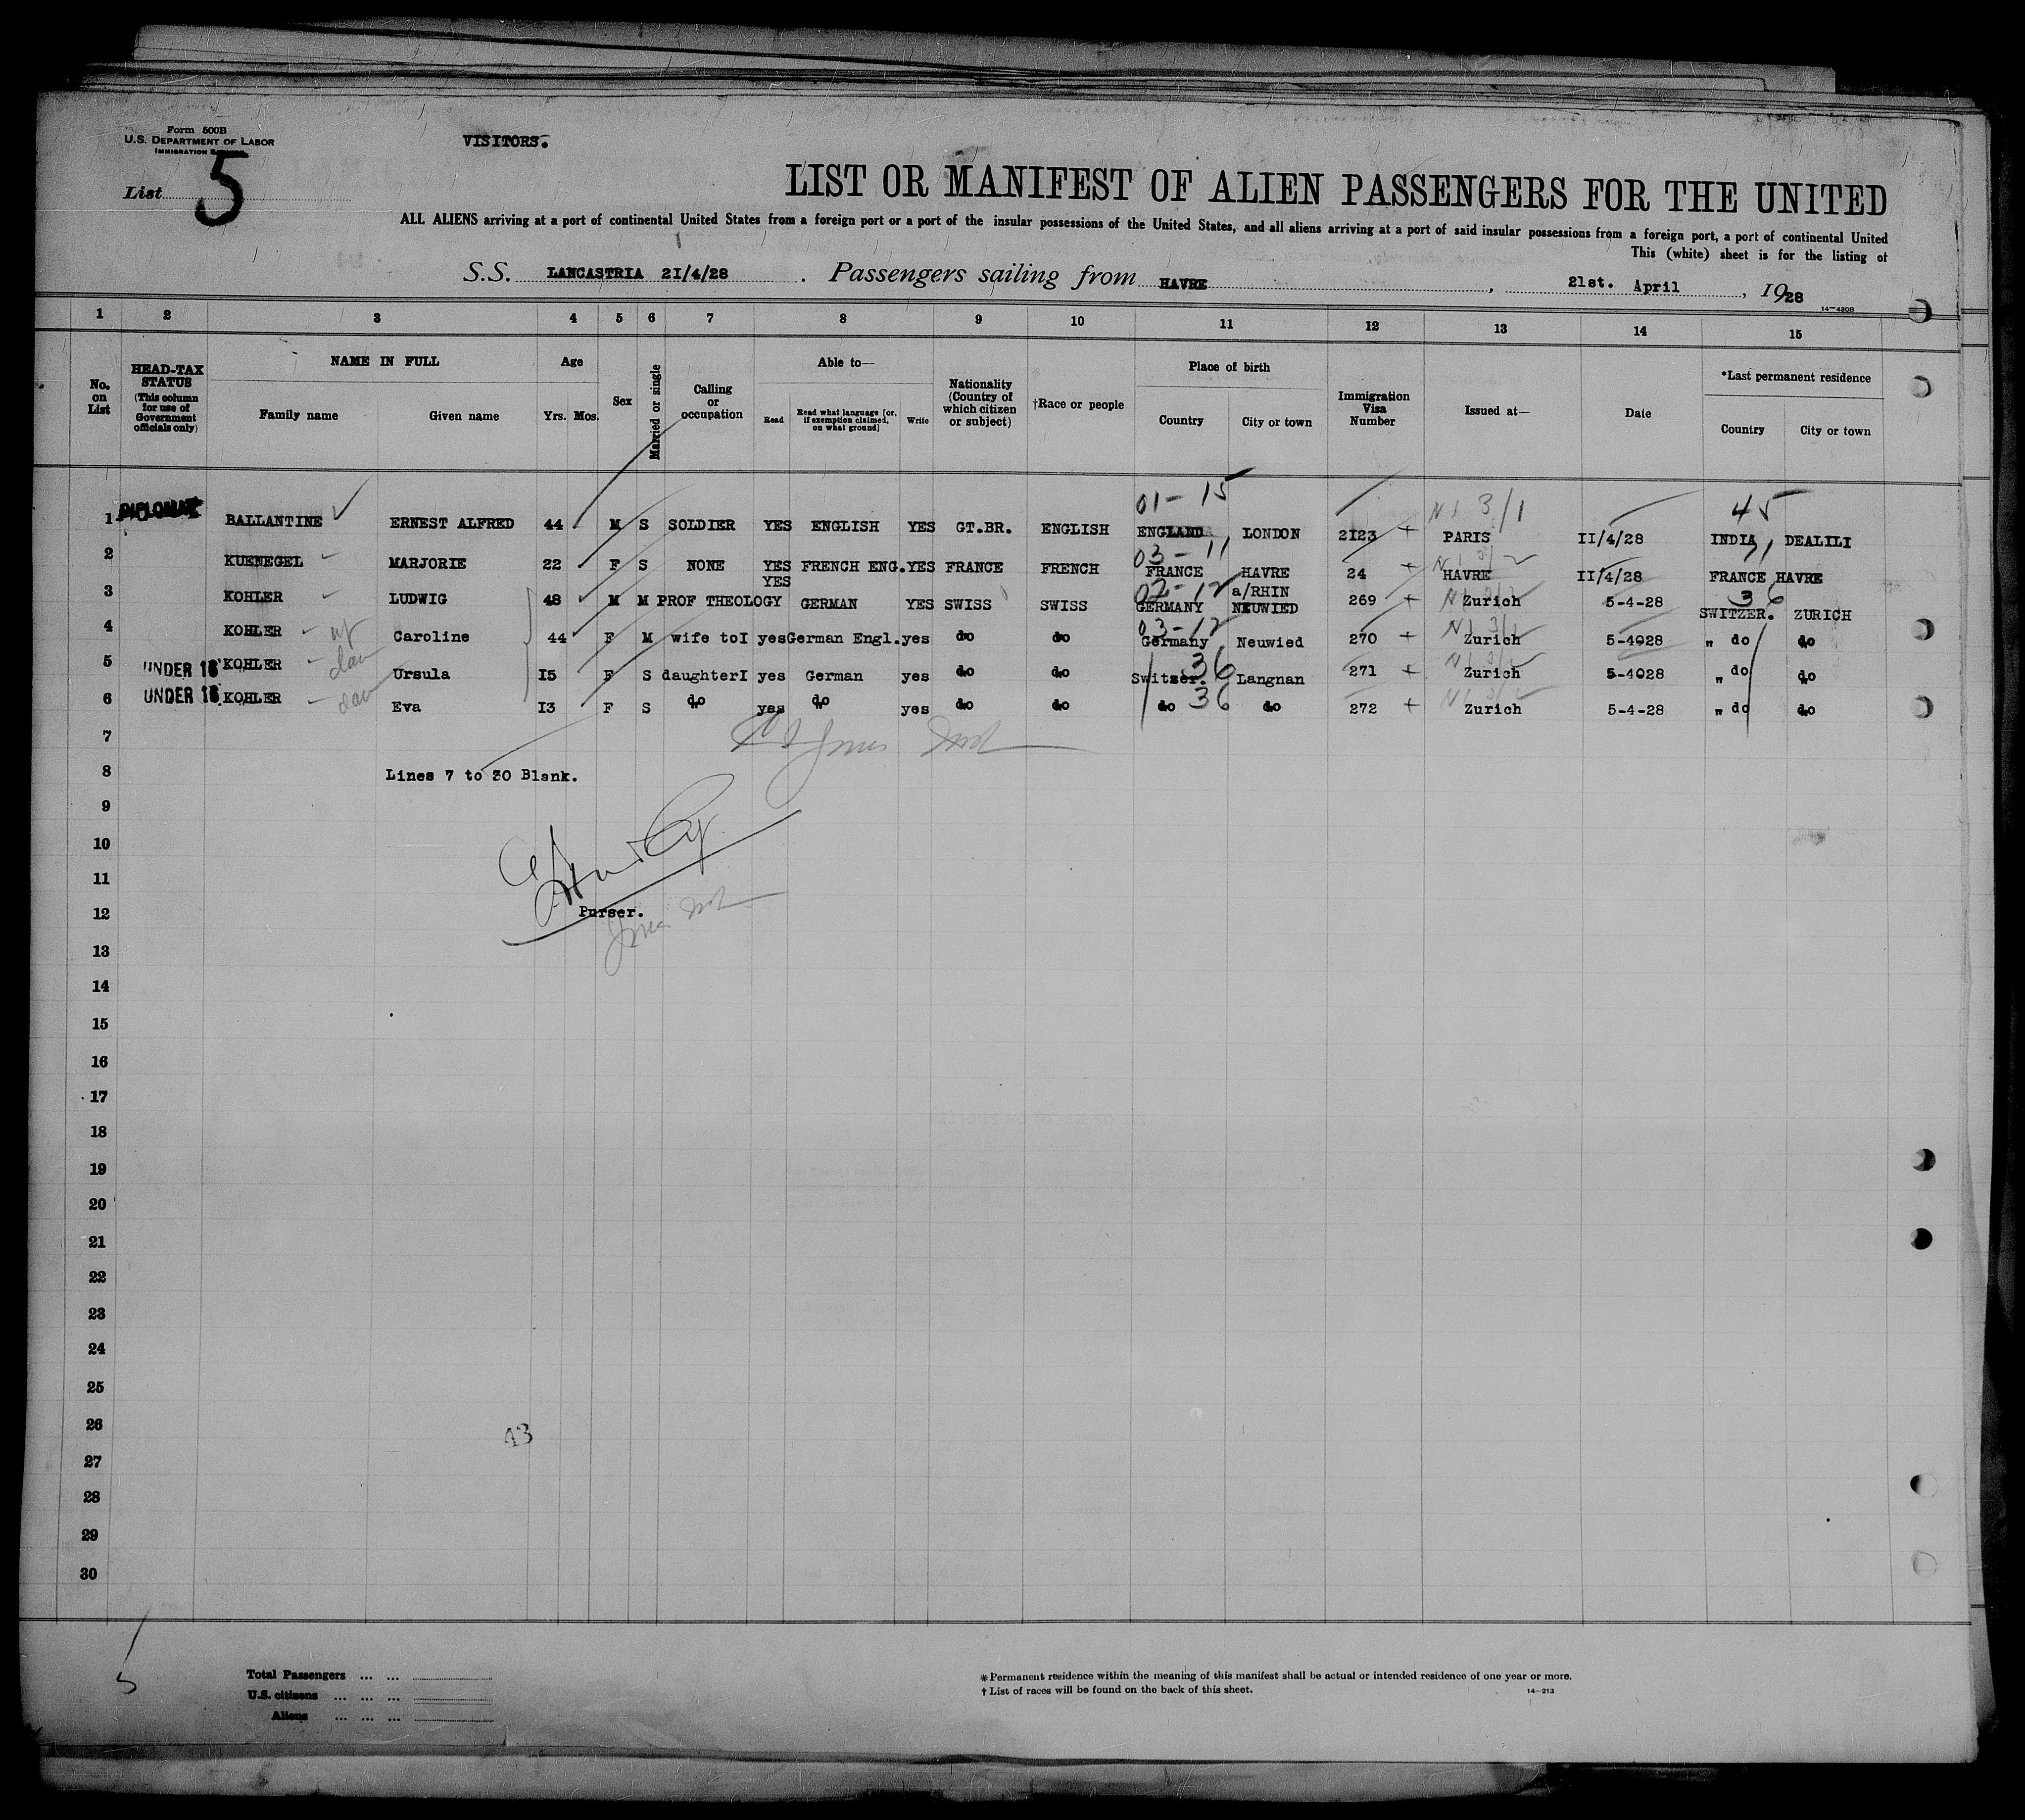 Form 500B
U.S. DEPARTMENT OF LABOR
IMMIGRATION
VISITORS.
List 5
LIST OR MANIFEST OF ALIEN PASSENGERS FOR THE UNITED
ALL ALIENS arriving at a port of continental United States from a foreign port or a port of the insular possessions of the United States, and all aliens arriving at a port of said insular possessions from a foreign port, a port of continental United
This (white) sheet is for the listing of
S.S. LANCASTRIA 2I/4/28 . Passengers sailing from HAVRE , 21st. April , 1928
14-420B
1 2 3 4 5 6 7 8 9 10 11 12 13 14 15
No. on List
HEAD-TAX STATUS (This column for use of Government officials only)
NAME IN FULL
Family name Given name
Age
Yrs. Mos.
Sex
Married or single
Calling or occupation
Able to—
Read Read what language [or, if exemption claimed, on what ground] Write
Nationality (Country of which citizen or subject)
†Race or people
Place of birth
Country City or town
Immigration Visa Number
Issued at—
Date
*Last permanent residence
Country City or town
01-15 N I 3/1 45
1 DIPLOMAT BALLANTINE ERNEST ALFRED 44 M S SOLDIER YES ENGLISH YES GT.BR. ENGLISH ENGLAND LONDON 2I23 + PARIS II/4/28 INDIA DEALILI
03-11
2 KUENEGEL MARJORIE 22 F S NONE YES FRENCH ENG. YES FRANCE FRENCH FRANCE HAVRE 24 + HAVRE II/4/28 FRANCE HAVRE
YES 02-12 a/RHIN 36
3 KOHLER LUDWIG 48 M M PROF THEOLOGY GERMAN YES SWISS SWISS GERMANY NEUWIED 269 + Zurich 5-4-28 SWITZER. ZURICH
03-12
4 KOHLER Caroline 44 F M wife toI yes German Engl. yes do do Germany Neuwied 270 + Zurich 5-4928 " do do
36
5 UNDER 16 KOHLER Ursula I5 F S daughterI yes German yes do do Switzer. Langnan 271 + Zurich 5-4028 " do do
6 UNDER 16 KOHLER Eva I3 F S do yes do yes do do do 36 do 272 + Zurich 5-4-28 " do do
7
8 Lines 7 to 30 Blank.
9
10
11
12 Purser.
13
14
15
16
17
18
19
20
21
22
23
24
25
26 43
27
28
29
30
5
Total Passengers ... ...
U.S. citizens ... ... ...
Aliens ... ... ...
* Permanent residence within the meaning of this manifest shall be actual or intended residence of one year or more.
† List of races will be found on the back of this sheet.
14-213